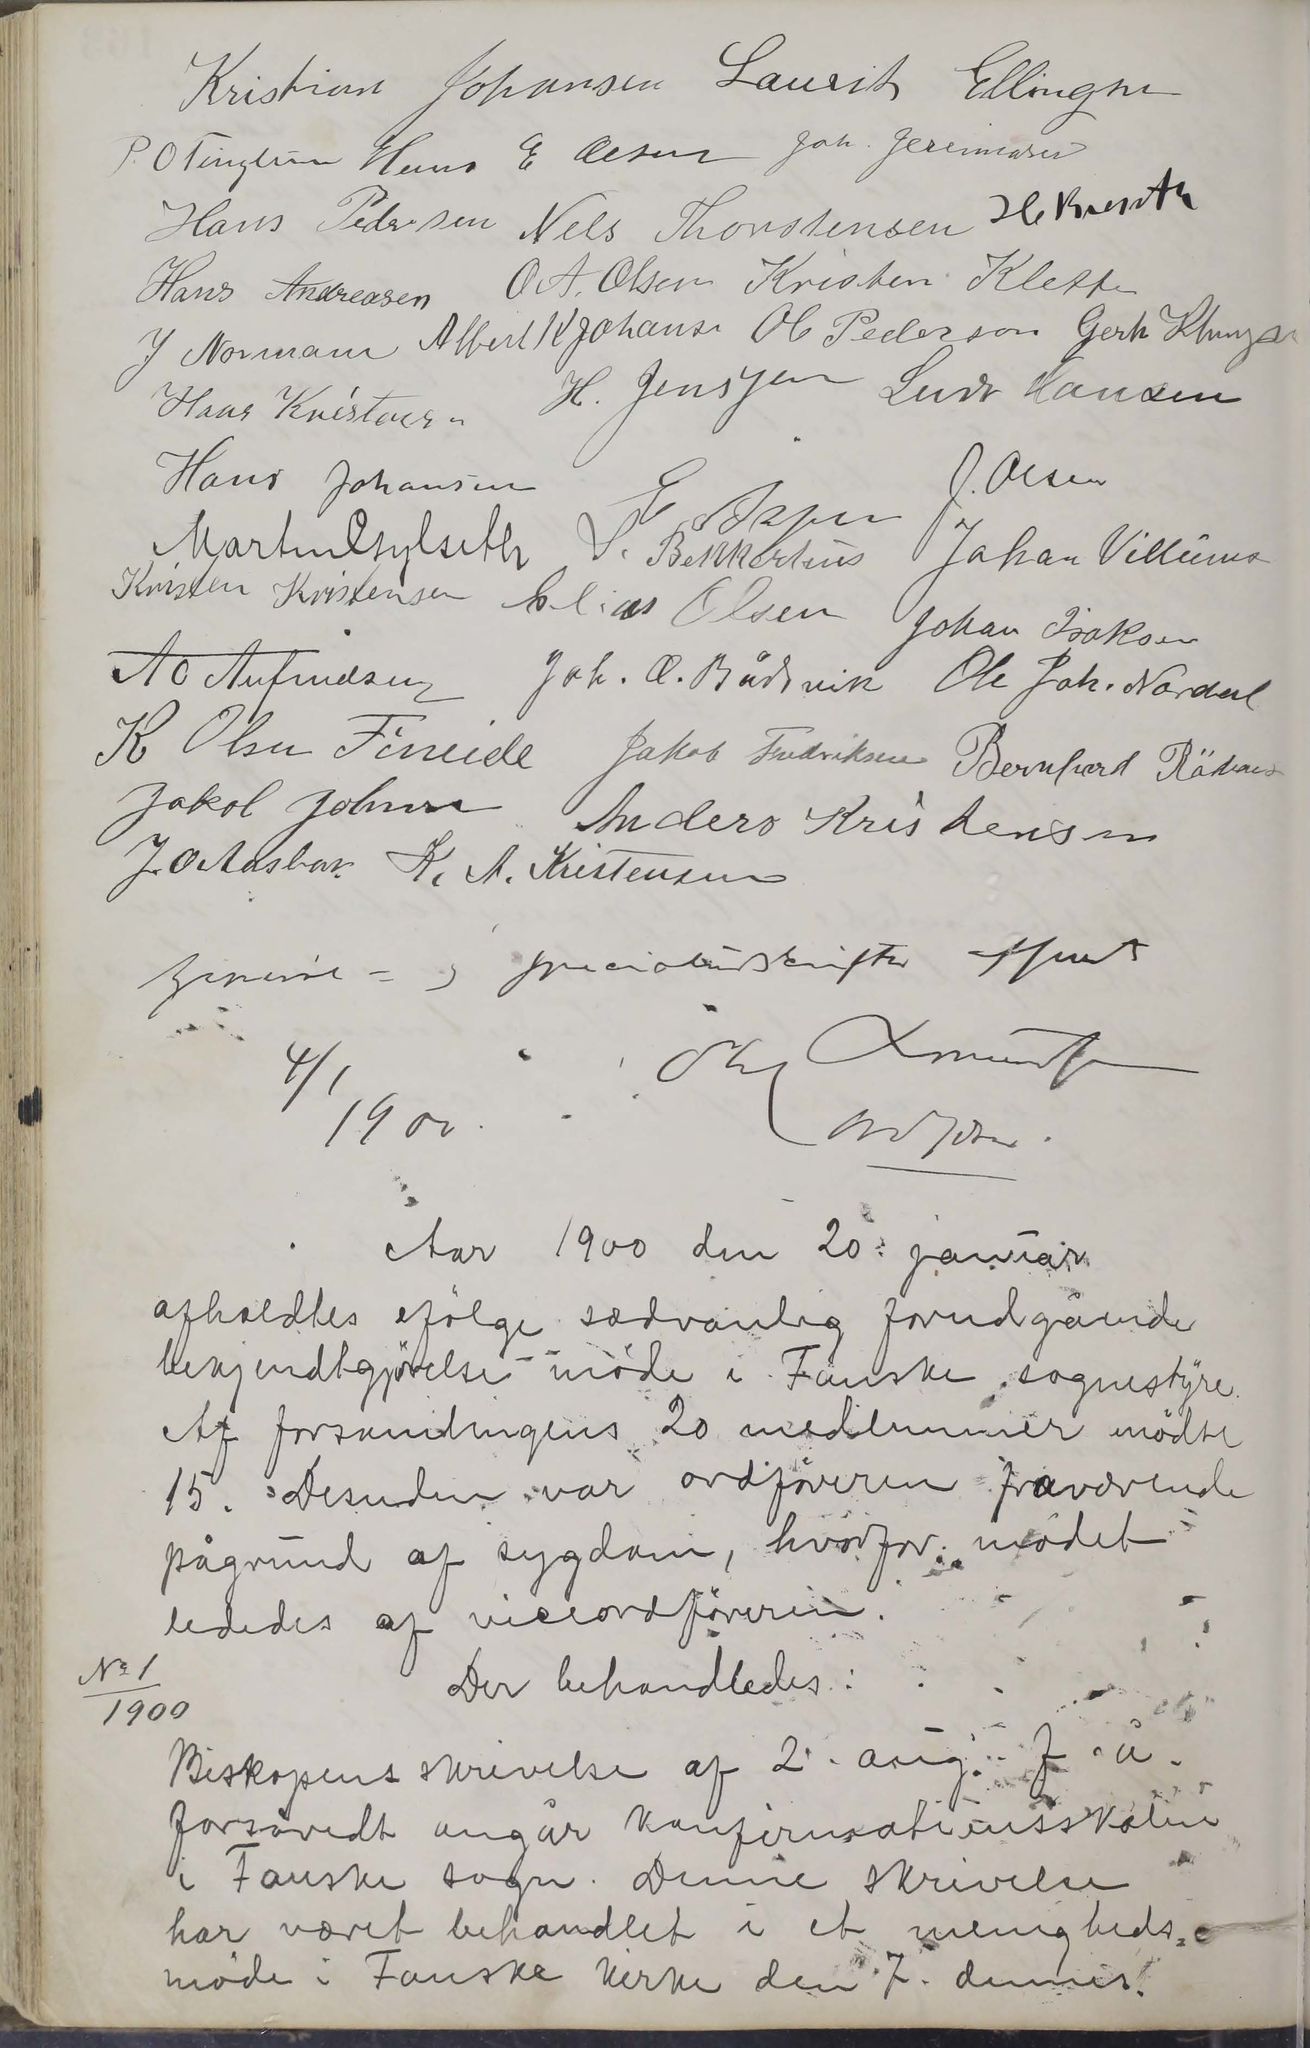 Kristian Johansen Laurits Ellingsen
P. O Tinglum Hans E Olsen Joh. Jeremiasen
Hans Pedersen Nels Thorstensen
Hans Andreasen O A. Olsen Kristen Klette
J Normann Albert K Johansen Ole Pederson Gerh
Hans H. Jenssen Ludv Hansen
Hans Johansen J. Olsen
Martin E Aspen
L. Bekkertius Johan Villums
Kristen Kristensen Elias Olsen Johan Isaksen
A O Joh. A. Bådsvik Ole Joh. Nordal
K Olsen Fineide Jakob Fredriksen Bernhard
Jakob Johnsen Anders Kristensen
J. O Aasbak K. A. Kristensen
specialudskrifter
4/1
1900.
ordfører.
Aar 1900 den 20. januar
afholdtes ifølge sædvanlig forudgående
bekjendtgjørelse møde i Fauske sognestyre.
Af forsamlingens 20 medlemmer mødte
15. Desuden var ordføreren fraværende
pågrund af sygdom, hvorfor mødet
lededes af viceordføreren.
Der behandledes:
No 1
1900
Biskopens skrivelse af 2. aug. f. å.
forsåvidt angår konfirmationsskolen
i Fauske sogn. Denne skrivelse
har været behandlet i et menigheds-
møde i Fauske kirke den 7. dennes.